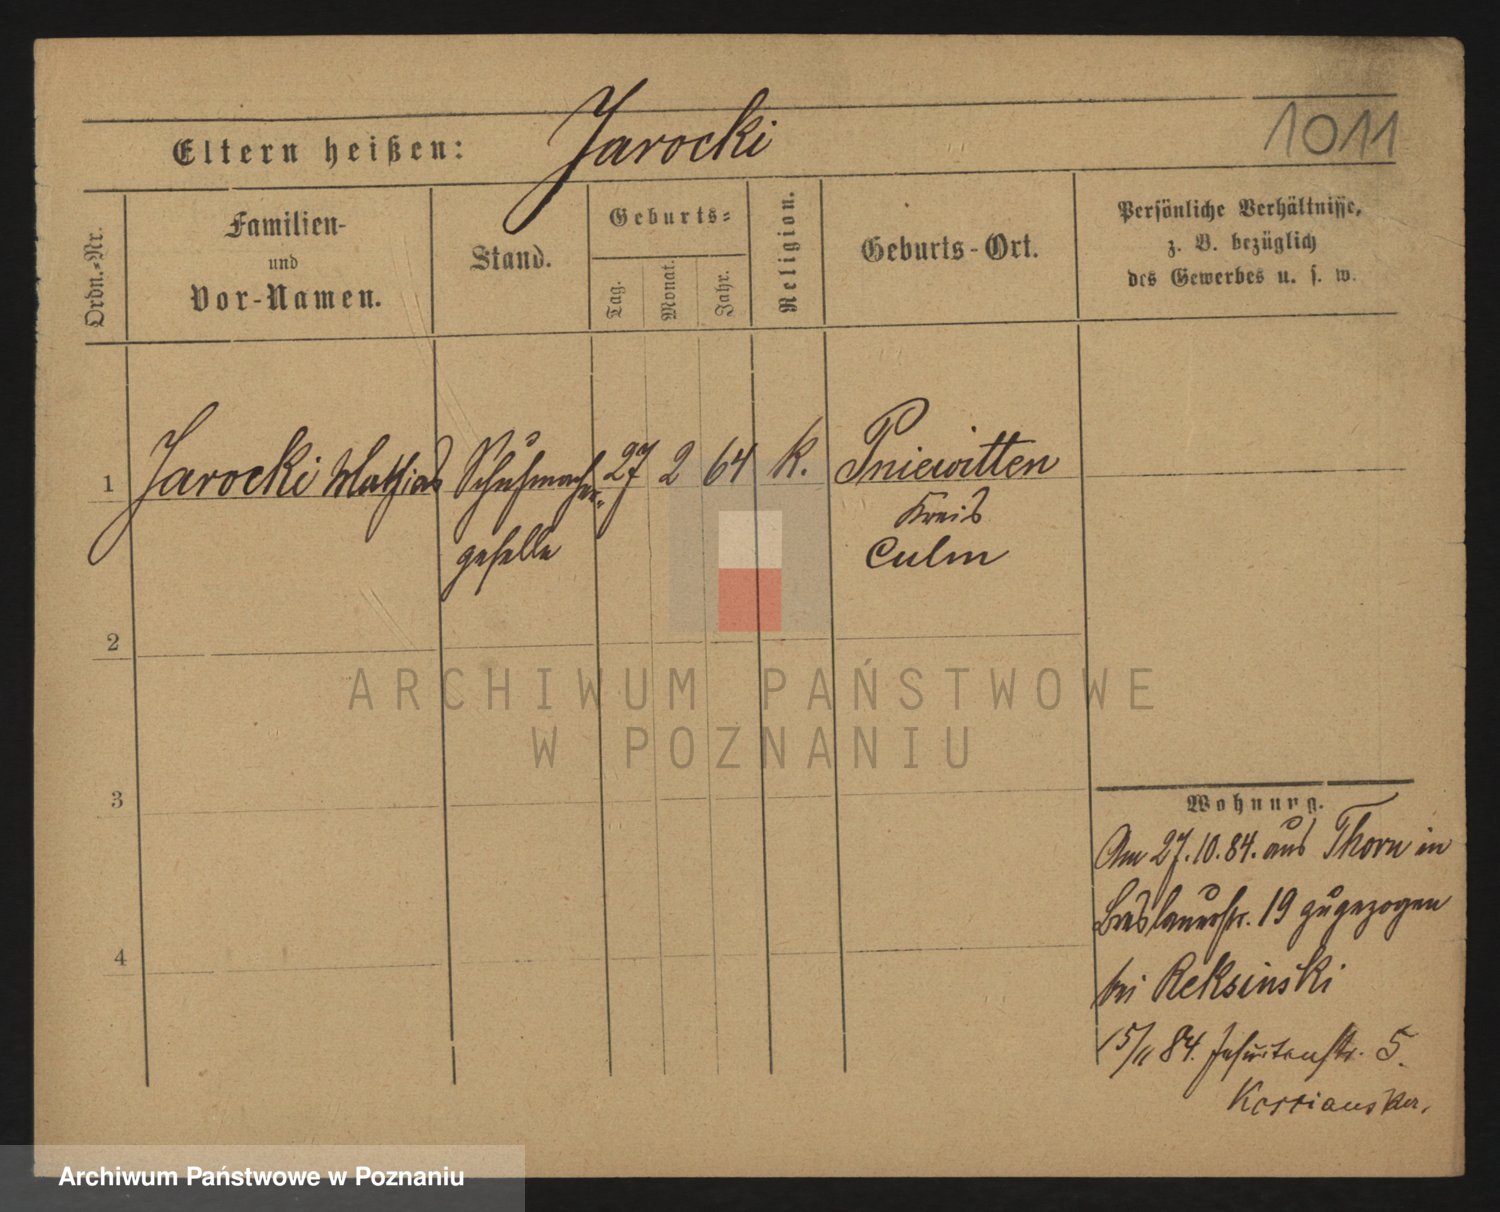 Eltern heißen: Jarocki
1011
Ordn.-Nr.
Familien-
und
Vor-Namen.
Stand.
Geburts-
Tag.
Monat.
Jahr.
Religion.
Geburts-Ort.
Persönliche Verhältnisse,
z. B. bezüglich
des Gewerbes u. s. w.
1 Jarocki Mathias Schuhmacher- 27 2 64 k. Pniewitten
geselle
Kreis
Culm
2
ARCHIWUM PAŃSTWOWE
W POZNANIU
3
Wohnung.
Am 27.10.84. aus Thorn in
Breslauerstr. 19 zugezogen
bei Reksinski
4
15/11 84. Jesuitenstr. 5.
Archiwum Państwowe w Poznaniu